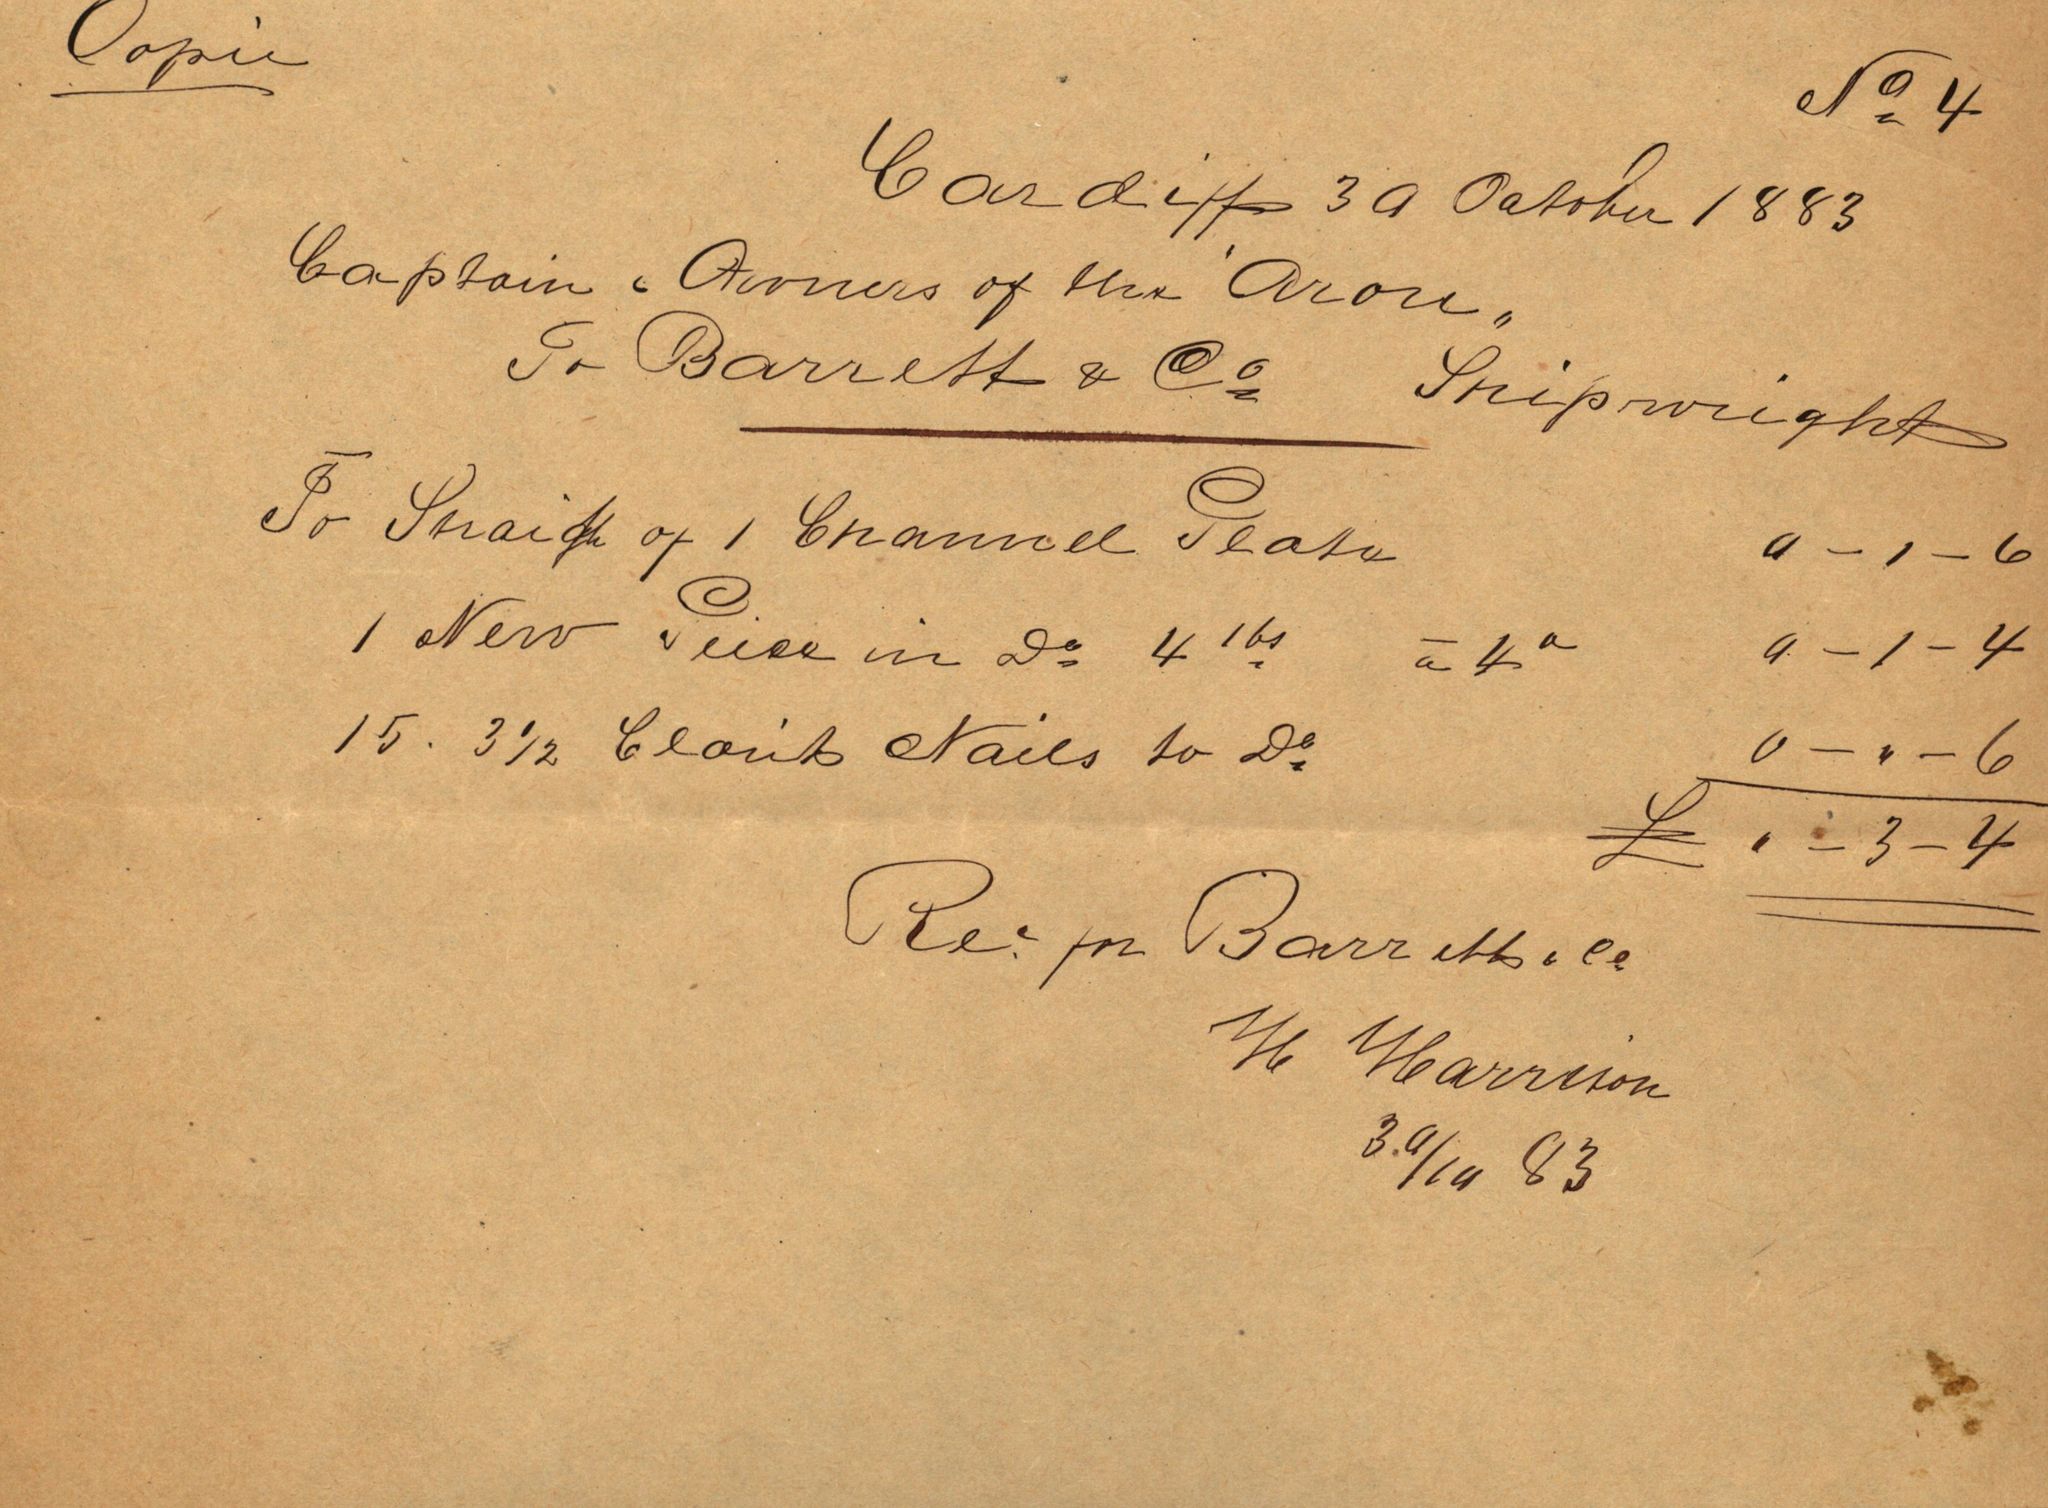 Copie
No 4
Cardiff 30 October 1883
Captain & Owners of the "Aron"
To Barrett & Co Shipwright
To Straigh of 1 Channel Plate
0 – 1 – 6
1 New Peice in Do 4 lbs à 4d
0 – 1 – 4
15. 3 1/2 Clout Nails to Do
0 – " – 6
£ " – 3 – 4
Rec. for Barrett & Co
H Harrison
30/10 83